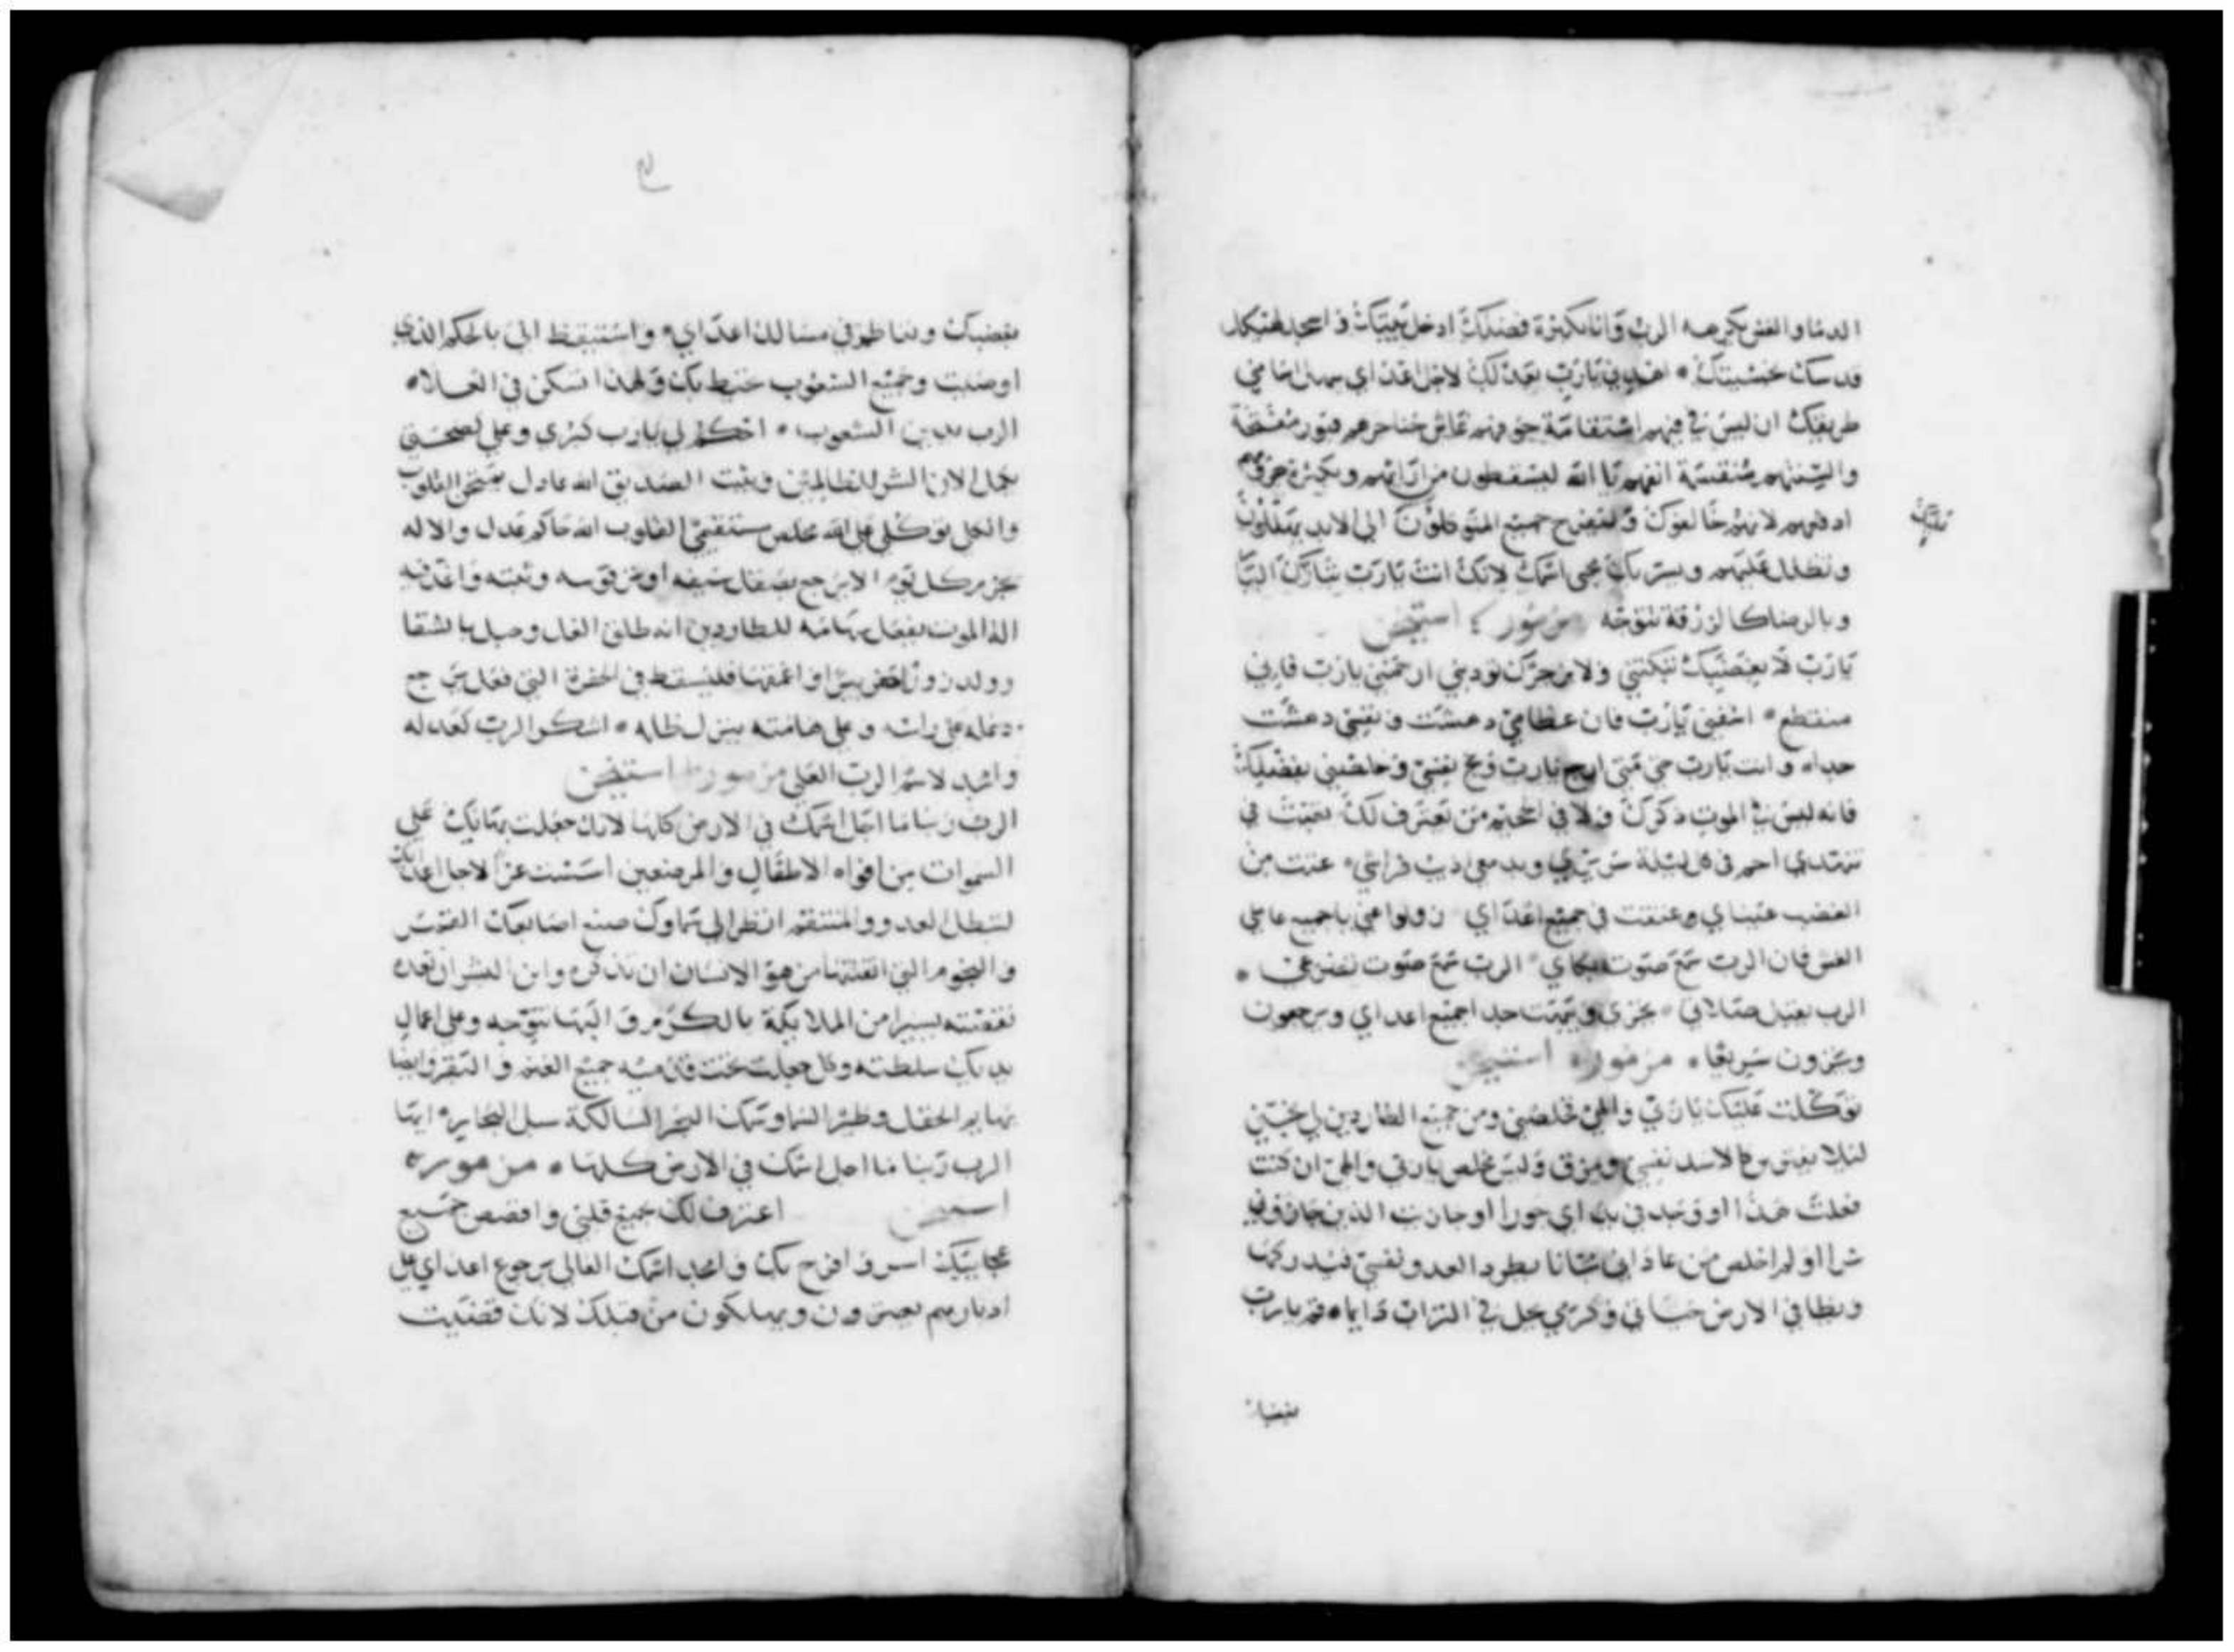 الدما والغش يكرهه الرب وانا بكثرة فضلك ادخل بيتك واسجد لهيكل
قدسك بخشيتك اهديني يارب بعدلك لاجل اعداي سهل امامي
طريقك ان ليس في فيهم استقامة جوفهم غاش حناجرهم قبور مفتحة
والسنتهم منقسمة اتهمهم يا الله ليسقطون من اراتهم وبكثرة جرمهم
ادفهم لانهم خالفوك وليفرح جميع المتوكلون الى الابد يمتلون
وتظلل عليهم ويسر بك محبي اسمك لانك انت يارب تبارك البار
وبالرضا كالزرقة تتوجه مزمور استيخن
يارب لا بغضبك تبكتني ولا برجزك تودبني ارحمني يارب فاني
منقطع اشفيني يارب فان عظامي دهشت ونفسي دهشت
جدا وانت يارب حتى متى ارجع يارب ونج نفسي وخلصني بفضلك
فانه ليس في الموت ذكرك ولا في الجحيم من يعترف لك تعبت في
تنهدي احم في كل ليلة سريري وبدمعي اذيب فراشي عتت من
الغضب عيناي وعتقت في جميع اعداي زولوا عني يا جميع عاملي
الغش فان الرب سمع صوت بكاي الرب سمع صوت تضرعي
الرب يقبل صلاتي يخزى ويبهت جدا جميع اعداي ويرجعون
ويخزون سريعا مزمور استيخن
توكلت عليك ياربي والهي خلصني ومن جميع الطاردين لي نجيني
لئلا يفترس كالاسد نفسي ويمزق وليس مخلص ياربي والهي ان كنت
فعلت هذا او وجد في يداي جورا او جازيت الذين جازوني
شرا او لم اخلص من عاداني مجانا يطرد العدو نفسي فيدركها
ويطا في الارض حياتي وكرمي يحل في التراب دايما قم يارب
بغضبك
بغضبك وتعاظم في مسالك اعداي واستيقظ الي بالحكم الذي
اوصيت وجميع الشعوب تحيط بك ولهذا اسكن في العلاء
الرب يدين الشعوب احكم لي يارب كبري وعلي لصحتي
يكمل الان الشر للظالمين ويثبت الصديق الله عادل يمتحن القلوب
والكلى توكلي على الله مخلص مستقيمي القلوب الله حاكم عدل والاله
يجزم كل يوم ان لا يرجع يصقل سيفه اوتر قوسه وثبته واعد فيه
الة الموت يفعل سهامه للطاردين انه طلق الغل وحبل بالشقا
وولد زورا حفر بيرا واعمقها فليسقط في الحفرة التي فعل يرجع
دغله على راسه وعلى هامته ينزل ظلمه اشكر الرب كعدله
وانشد لاسم الرب العلي مزمور استيخن
الرب ربنا ما اجل اسمك في الارض كلها لانك جعلت بهاك على
السموات من افواه الاطفال والمرضعين اسست عزا لاجل اعداك
لتبطل العدو والمنتقم انظر الى سماوك صنع اصابعك القمر
والنجوم التي اتقنتها من هو الانسان ان تذكره وابن البشر ان تعده
نقصته يسيرا من الملايكة بالكرم والبها تتوجه وعلى اعمال
يديك سلطته وكل جعلت تحت قدميه جميع الغنم والبقر وايضا
بهايم الحقل وطير السما وسمك البحر السالكة سبل البحار ايها
الرب ربنا ما اجل اسمك في الارض كلها مزمور
استيخن اعترف لك جميع قلبي واقصص جميع
عجايبك اسر وافرح بك وامجد اسمك العالي برجوع اعداي على
ادبارهم يعثرون ويهلكون من قبلك لانك قضيت